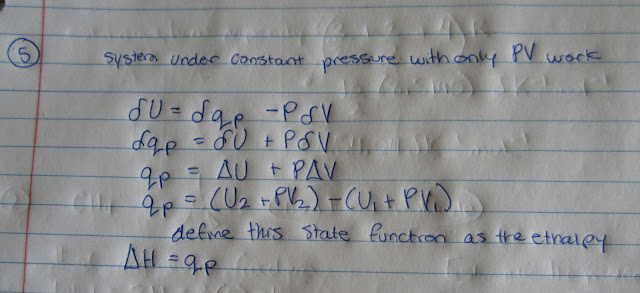 ⑤ system under constant pressure with only PV work
δU = δqₚ - PδV
δqₚ = δU + PδV
qₚ = ΔU + PΔV
qₚ = (U₂ + PV₂) - (U₁ + PV₁)
define this state function as the ethalpy
ΔH = qₚ